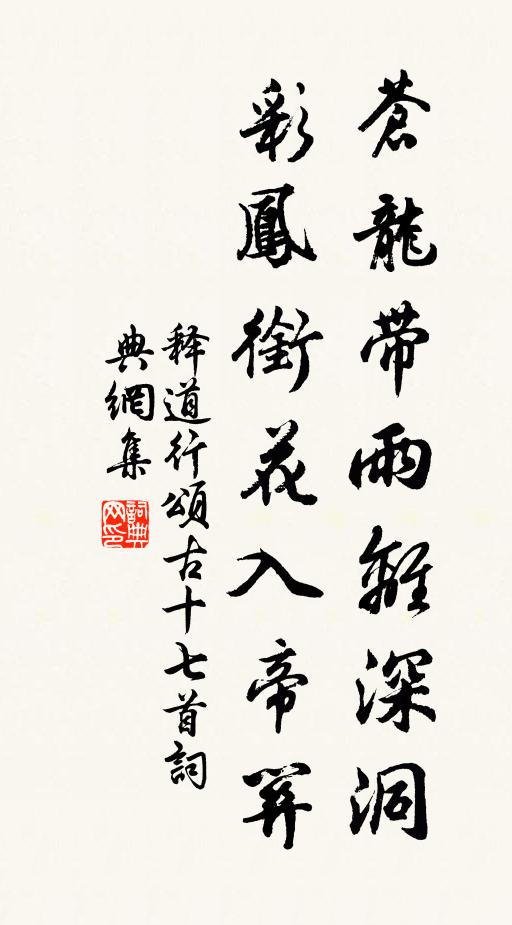 蒼龍帶雨離深洞
彩鳳銜花入帝關
释道行頌古十七首詞
典網集
詞典
网印